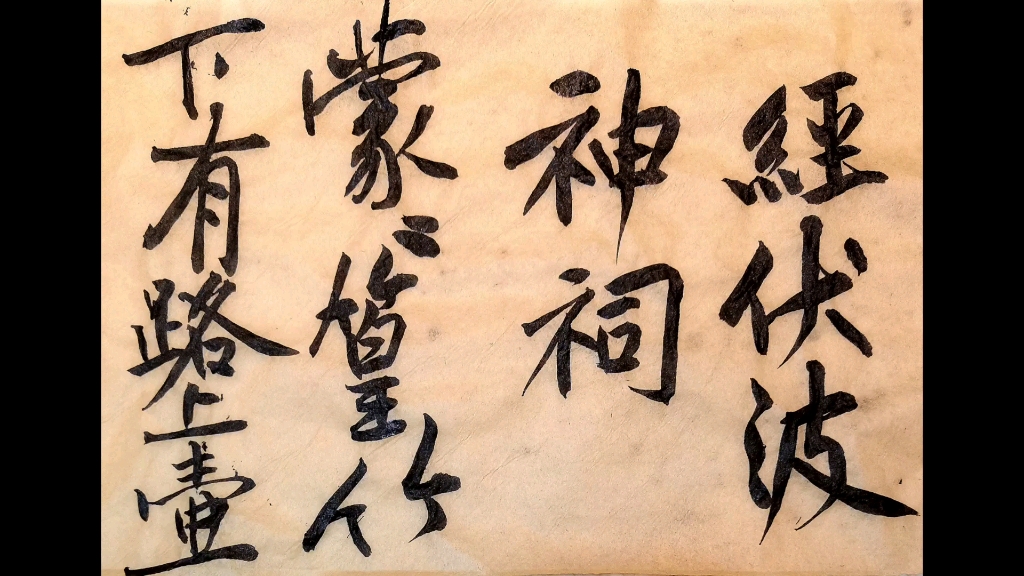 經伏波
神祠
蒙〻篁竹
下有路上壺